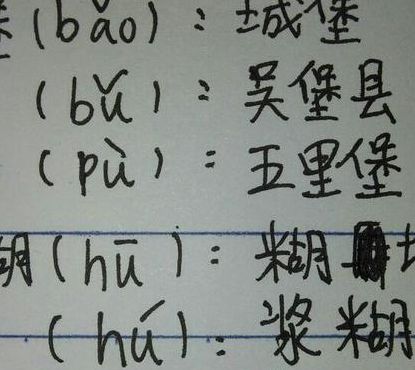 (bǎo)：城堡
(bǔ)：吴堡县
(pù)：五里堡
(hū)：糊
(hú)：浆糊